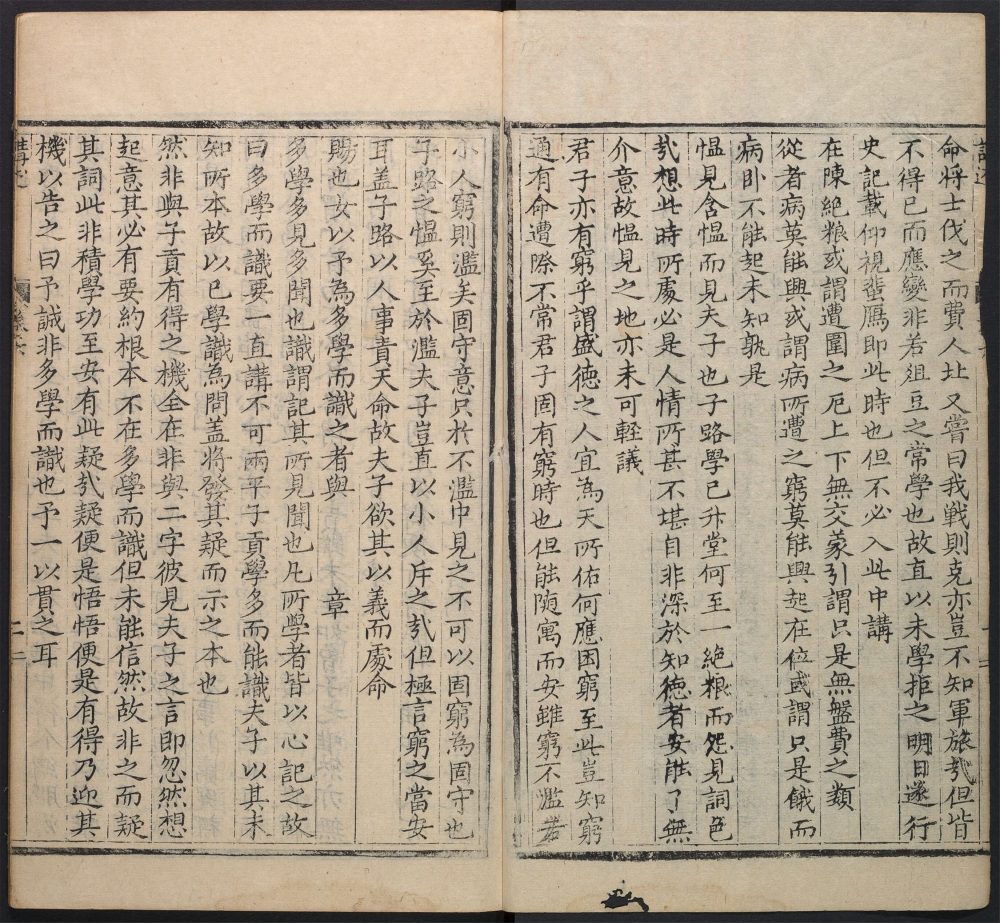 命將士伐之而費人北又嘗曰我戰則克亦豈不知軍旅㢤但皆
不得已而應變非若俎豆之常學也故直以未學拒之明日遂行
史記載仰視蜚鴈即此時也但不必入此中講
在陳絶粮或謂遭圍之厄上下無交蒙引謂只是無盤費之𩔖
從者病莫能興或謂病所遭之窮莫能興起在位或謂只是餓而
病卧不能起未知孰是
愠見含愠而見夫子也子路學已升堂何至一絶粮而怨見詞色
㢤想此時所處必是人情所甚不堪自非深於知德者安能了無
介意故愠見之地亦未可輕議
君子亦有窮乎謂盛德之人宜為天所佑何應困窮至此豈知窮
通有命遭際不常君子固有窮時也但能随寓而安雖窮不濫若
小人窮則濫矣固守意只於不濫中見之不可以固窮為固守也
子路之愠奚至於濫夫子豈直以小人斥之㢤但極言窮之當安
耳盖子路以人事責天命故夫子欲其以義而處命
賜也女以予為多學而識之者與 章
多學多見多聞也識謂記其所見聞也凡所學者皆以心記之故
曰多學而識要一直講不可兩平子貢學多而能識夫子以其未
知所本故以已學識為問盖將發其疑而示之本也
然非與子貢有得之機全在非與二字彼見夫子之言即忽然想
起意其必有要約根本不在多學而識但未能信然故非之而疑
其詞此非積學功至安有此疑㢤疑便是悟悟便是有得乃迎其
機以告之曰予誠非多學而識也予一以貫之耳